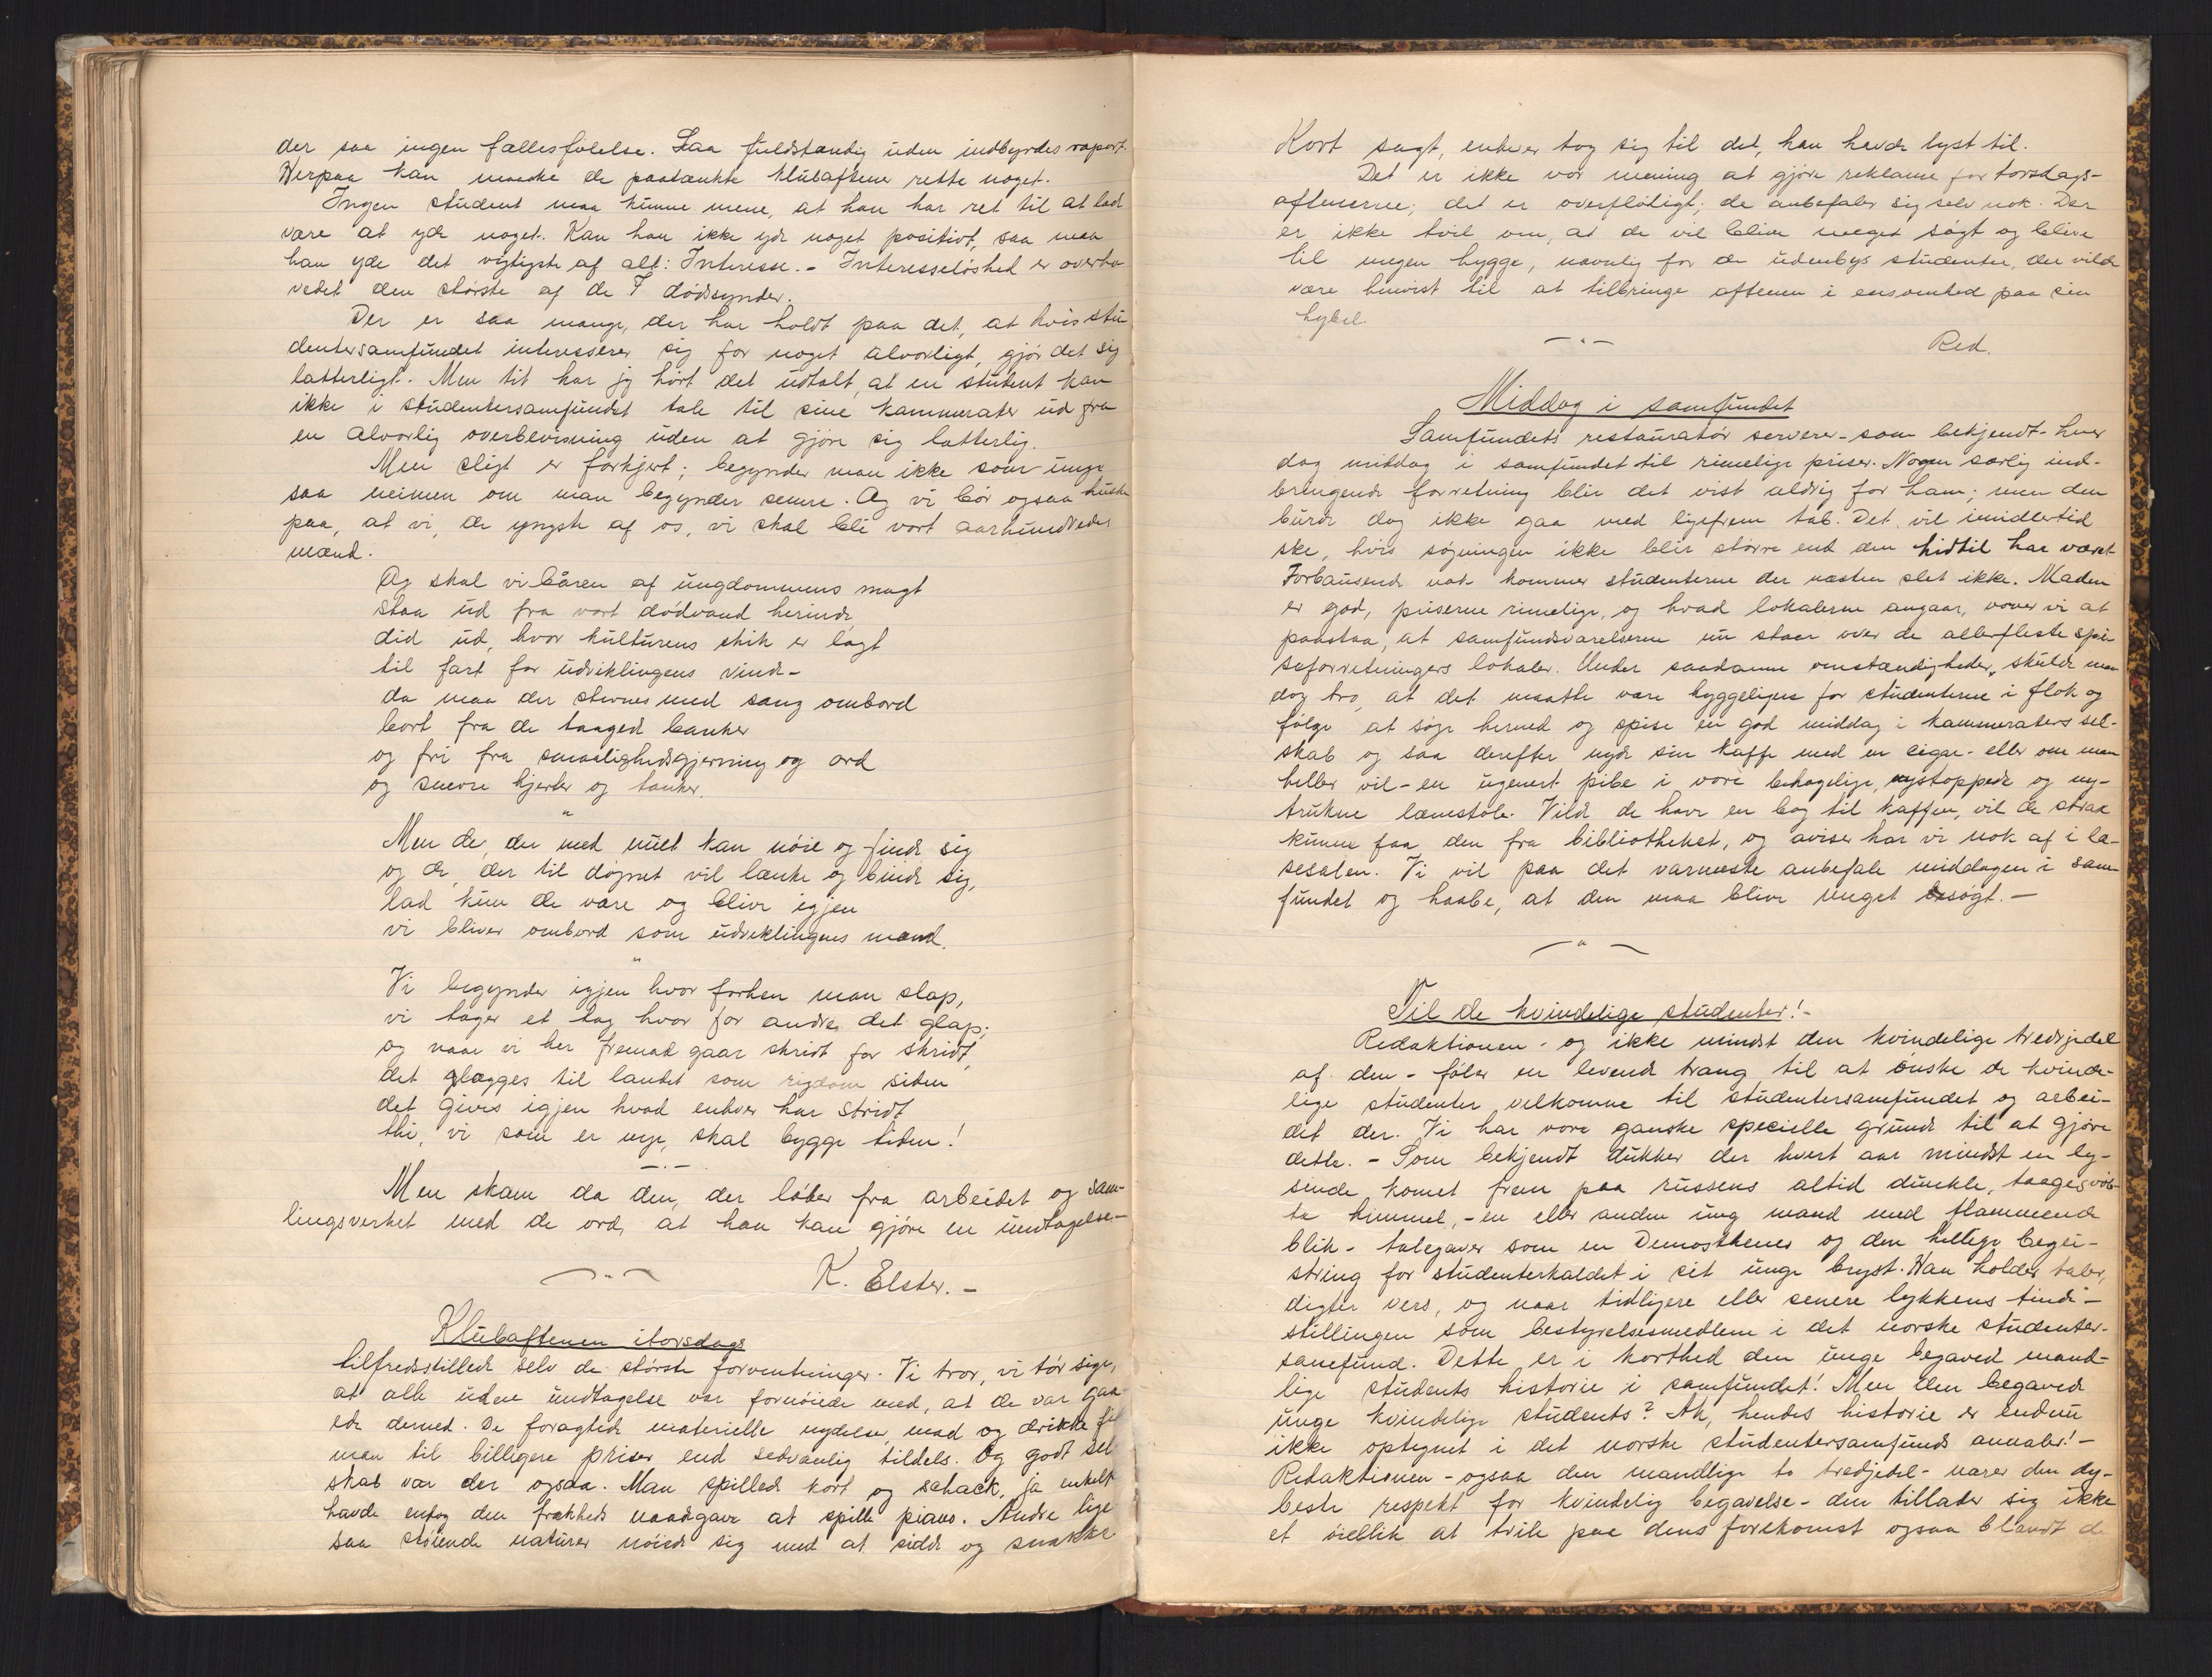 der saa ingen fællesfølelse. Saa fuldstændig uden indbyrdes raport.
Herpaa kan maaske de paatænkte klubaftener rette noget.
Ingen student maa kunne mene, at han har ret til at lad
være at yde noget. Kan han ikke yde noget positivt, saa maa
han yde det vigtigste af alt: Interesse. – Interesseløshed er overho
vedet den største af de 7 dødssynder.
Der er saa mange, der har holdt paa det, at hvis stu
dentersamfundet interesserer sig for noget alvorligt, gjør det sig
latterligt. Men tit har jg hørt det udtalt, at en student kan
ikke i studentersamfundet tale til sine kammerater ud fra
en alvorlig overbevisning uden at gjøre sig latterlig.
Men sligt er forkjert; begynder man ikke som unge
saa neimen om man begynder senere. Og vi bør ogsaa huske
paa, at vi, de yngste af os, vi skal bli vort aarhundredes
mænd.
Og skal vi baaren af ungdommens magt
staa ud fra vort dødvand herinde,
did ud, hvor kulturens skib er lagt
til fart for udviklingens vinde –
da maa der stevnes med sang ombord
bort fra de taagede banker
og fri fra smaalighedsgjerning og ord
og snevre hjerter og tanker.
"
Men de, der med nuet kan nøie og finde sig
og de, der til døgnet vil lænke og binde sig,
lad kun de være og blive igjen
vi bliver ombord som udviklingens mænd.
"
Vi begynder igjen hvor forhen man slap,
vi tager et tag hvor for andre det glap;
og naar vi her fremad gaar skridt for skridt,
det glægges til landet som rigdom siden
det gives igjen hvad enhver har stridt
thi, vi som er unge, skal bygge tiden!
– . –
Men skam da den, der løber fra arbeidet og sam-
lingsverket med de ord, at han kan gjøre en undtagelse. –
K. Elster. –
Klubaftenen itorsdags
tilfredsstillede selv de største forventninger. Vi tror, vi tør sige,
at alle uden undtagelse var fornøiede med, at de var gaa
ede derned. De foragtede materielle nydelser, mad og drikke fik
man til billigere priser end sedvanlig tildels. Og godt sel
skab var der ogsaa. Man spillede kort og schack, ja enkelt
havde enfog den frækheds naadgave at spille piano. Andre lige
saa støiende naturer nøiede sig med at sidde og snakke
Kort sagt, enhver tog sig til det, han havde lyst til.
Det er ikke vor mening at gjøre reklame for torsdags-
aftenerne; det er overflødigt; de anbefaler sig selv nok. Der
er ikke tvil om, at de vil blive meget søgt og blive
til megen hygge, navnlig for de udenbys studenter, der vilde
være henvist til at tilbringe aftenen i ensomhed paa sin
hybel.
– " –
Red.
Middag i samfundet
Samfundets restauratør serverer – som bekjendt – hver
dag middag i samfundet til rimelige priser. Nogen særlig ind-
bringende forretning blir det vist aldrig for ham; men den
burde dog ikke gaa med ligefrem tab. Det vil imidlertid
ske, hvis søgningen ikke blir større end den hidtil har været.
Forbausende nok kommer studenterne der næsten slet ikke. Maden
er god, priserne rimelige, og hvad lokalerne angaar, vover vi at
paastaa, at samfundsværelserne nu staar over de allerfleste spi-
seforretningers lokaler. Under saadanne omstændigheder, skulde man
dog tro, at det maatte være hyggeligere for studenterne i flok og
følge at søge herned og spise en god middag i kammeraters sel-
skab og saa derefter nyde sin kaffe med en cigar – eller om man
heller vil – en ugenert pibe i vore behagelige, nystoppede og ny-
trukne lænestole. Vilde de have en bog til kaffen, vil de strax
kunne faa den fra bibliotheket, og aviser har vi nok af i læ-
sesalen. Vi vil paa det varmeste anbefale middagen i sam-
fundet og haabe, at den maa blive meget besøgt. –
– " –
Til de kvindelige studenter! –
Redaktionen – og ikke mindst den kvindelige tredjedel
af den – føler en levende trang til at ønske de kvinde-
lige studenter velkomne til studentersamfundet og arbei-
det der. Vi har vore ganske specielle grunde til at gjøre
dette. – Som bekjendt dukker der hvert aar mindst en ly-
sende komet frem paa russens altid dunkle, taagesvøb-
te himmel, – en eller anden ung mand med flammende
blik – talegaver som en Demosthenes og den hellige begei-
string for studenterkaldet i sit unge bryst. Han holder taler,
digter vers, og naar tidligere eller senere lykkens tinde –
stillingen som bestyrelsesmedlem i det norske studenter-
samfund. Dette er i korthed den unge begavede mand-
lige students historie i samfundet! Men den begavede
unge kvindelige students? Ak, hendes historie er endnu
ikke optegnet i det norske studentersamfunds annaler! –
Redaktionen – ogsaa den mandlige to tredjedel – nærer den dy-
beste respekt for kvindelig begavelse – den tillader sig ikke
et øieblik at tvile paa dens forekomst ogsaa blandt de